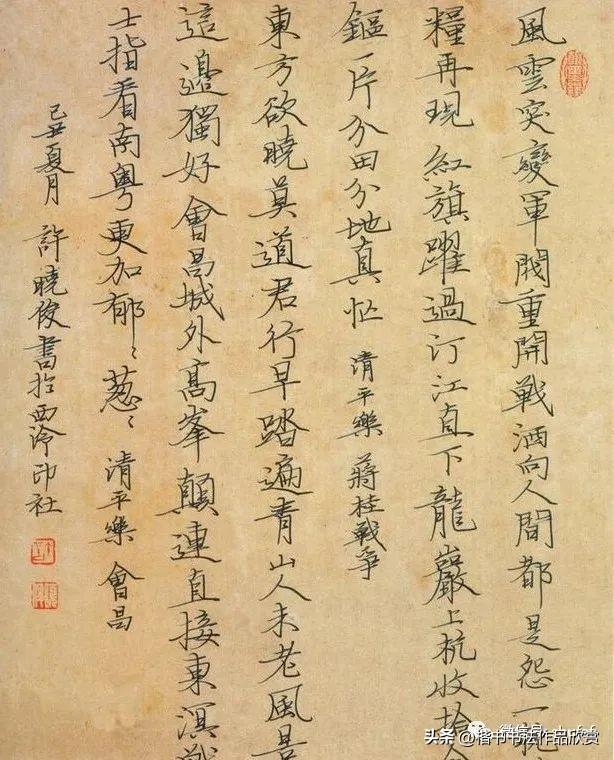 風雲突變軍閥重開戰洒向人間都是怨一枕
糧再現紅旗躍過汀江直下龍巖上杭收拾
鏂一片分田分地真忙 清平樂 蔣桂戰爭
東方欲曉莫道君行早踏遍青山人未老風景
這邊獨好會昌城外高峯顛連直接東溟戰
士指看南粵更加郁〻葱〻 清平樂 會昌
己丑夏月 許曉俊書於西泠印社
微信号
头条 @楷书书法作品欣赏